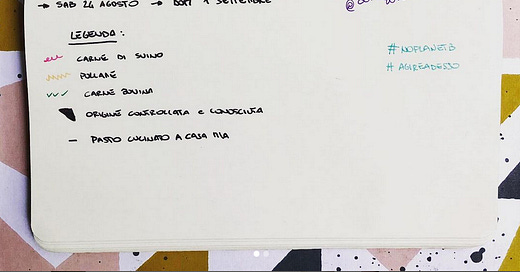 → SAB 24 AGOSTO → DOM 1 SETTEMBRE
LEGENDA:
CARNE DI SUINO
POLLAME
CARNE BOVINA
ORIGINE CONTROLLATA e CONOSCIUTA
— PASTO CUCINATO A CASA MIA
#NOPLANETB
#AGIREADESSO